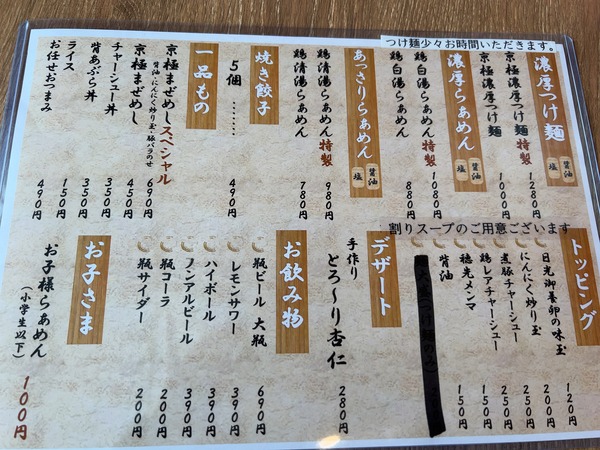 つけ麺少々お時間いただきます。
濃厚つけ麺
醤油
塩
京極濃厚つけ麺特製 1280円
京極濃厚つけ麺 1000円
濃厚らぁめん
醤油
塩
鶏白湯らぁめん特製 1080円
鶏白湯らぁめん 880円
あっさりらぁめん
醤油
塩
鶏清湯らぁめん特製 980円
鶏清湯らぁめん 780円
焼き餃子
5個……… 490円
一品もの
京極まぜめしスペシャル 690円
醤油・にんにく炒り玉・豚バラのせ
京極まぜめし 450円
チャーシュー丼 350円
背あぶら丼 350円
ライス 150円
お任せおつまみ 490円
割りスープのご用意ございます
トッピング
日光御養卵の味玉 120円
にんにく炒り玉 200円
煮豚チャーシュー 250円
鶏レアチャーシュー 250円
穂先メンマ 150円
背脂 150円
デザート
手作り
とろ〜り杏仁 280円
お飲み物
瓶ビール 大瓶 690円
レモンサワー 390円
ハイボール 390円
ノンアルビール 390円
瓶コーラ 200円
瓶サイダー 200円
お子さま
お子様らぁめん 100円
(小学生以下)